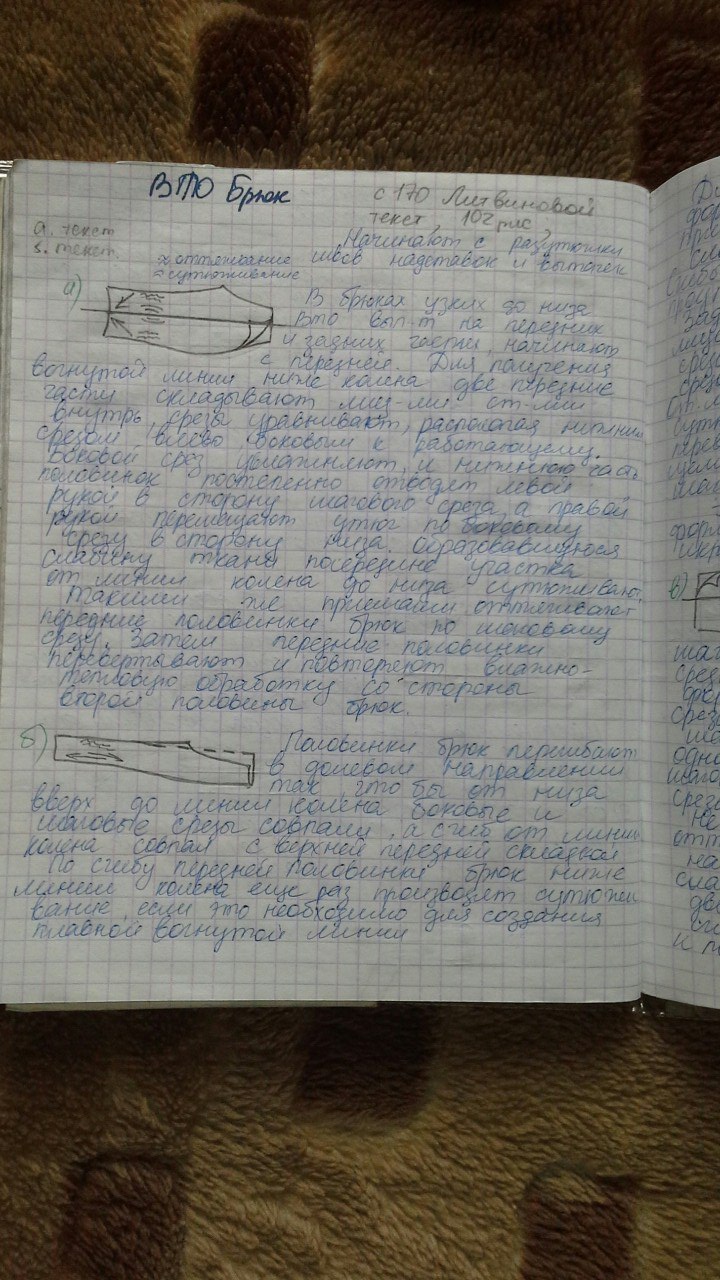 ВТО Брюк
с 170 Литвиновой
текст, 102 рис,
а. текст
Начинают с разутюжки
в. текст.
оттягивание швов надставок и вытачек
сутюживание
а)
В брюках узких до низа
ВТО вып-т на передних
и задних частях, начинают
с передней. Для получения
вогнутой линии ниже колена две передние
части складывают лиц-ми ст-ми
внутрь, срезы уравнивают, располагая нижним
срезом влево, боковым к работающему.
Боковой срез увлажняют и нижнюю часть
половинок постепенно отводят левой
рукой в сторону шагового среза, а правой
рукой перемещают утюг по боковому
срезу в сторону низа. Образовавшуюся
слабину ткани посередине участка
от линии колена до низа сутюживают.
Такими же приемами оттягивают
передние половинки брюк по шаговому
срезу. Затем передние половинки
перевертывают и повторяют влажно-
тепловую обработку со стороны
второй половины брюк.
б)
Половинки брюк перегибают
в долевом направлении
так, что бы от низа
вверх до линии колена боковые и
шаговые срезы совпали, а сгиб от линии
колена совпал с верхней передней складкой
По сгибу передней половинки брюк ниже
линии колена еще раз производят сутюжи
вание, если это необходимо для создания
плавной вогнутой линии
в)